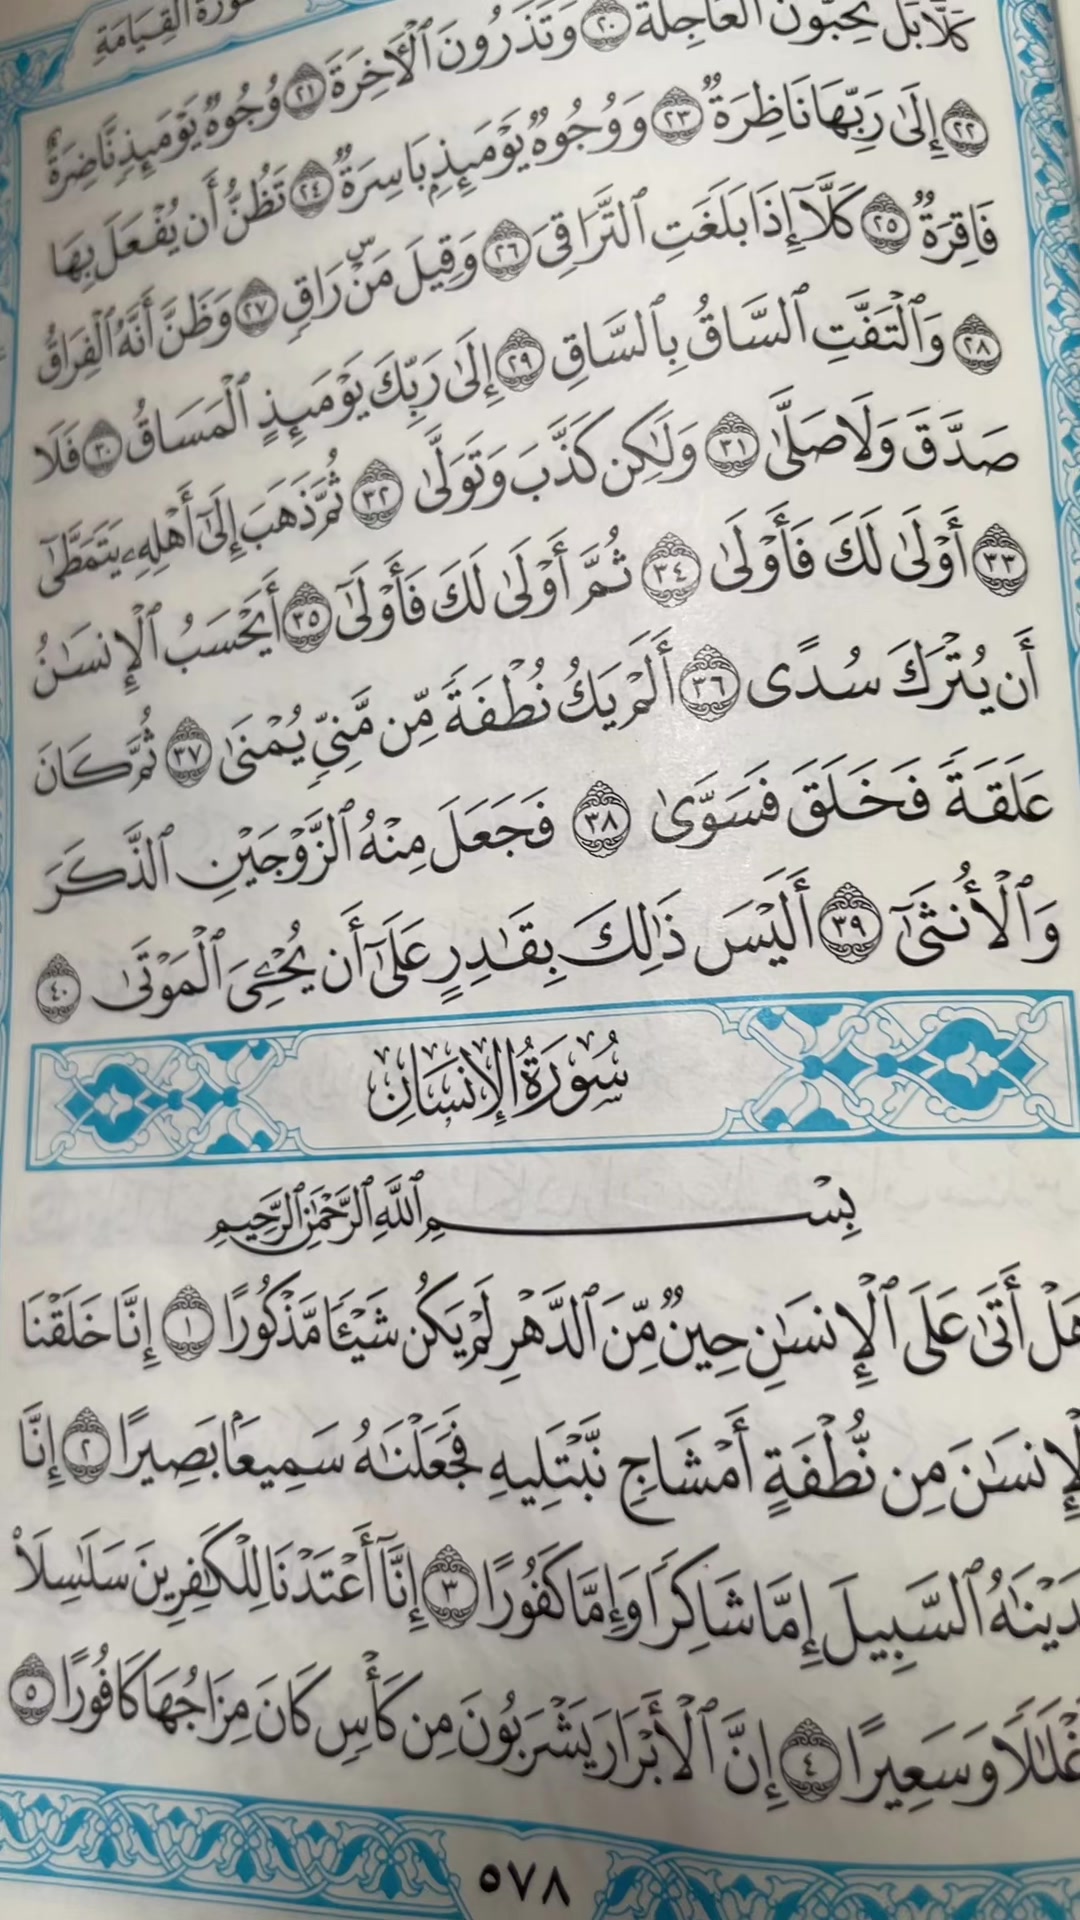 سورة القيامة
كَلَّا بَلْ تُحِبُّونَ ٱلْعَاجِلَةَ ٢٠ وَتَذَرُونَ ٱلْأَخِرَةَ ٢١ وُجُوهٌ يَوْمَئِذٍ نَّاضِرَةٌ
٢٢ إِلَىٰ رَبِّهَا نَاظِرَةٌ ٢٣ وَوُجُوهٌ يَوْمَئِذٍۭ بَاسِرَةٌ ٢٤ تَظُنُّ أَن يُفْعَلَ بِهَا
فَاقِرَةٌ ٢٥ كَلَّآ إِذَا بَلَغَتِ ٱلتَّرَاقِىَ ٢٦ وَقِيلَ مَنْ ۜ رَاقٍ ٢٧ وَظَنَّ أَنَّهُ ٱلْفِرَاقُ
٢٨ وَٱلْتَفَّتِ ٱلسَّاقُ بِٱلسَّاقِ ٢٩ إِلَىٰ رَبِّكَ يَوْمَئِذٍ ٱلْمَسَاقُ ٣٠ فَلَا
صَدَّقَ وَلَا صَلَّىٰ ٣١ وَلَٰكِن كَذَّبَ وَتَوَلَّىٰ ٣٢ ثُمَّ ذَهَبَ إِلَىٰٓ أَهْلِهِۦ يَتَمَطَّىٰٓ
٣٣ أَوْلَىٰ لَكَ فَأَوْلَىٰ ٣٤ ثُمَّ أَوْلَىٰ لَكَ فَأَوْلَىٰٓ ٣٥ أَيَحْسَبُ ٱلْإِنسَٰنُ
أَن يُتْرَكَ سُدًى ٣٦ أَلَمْ يَكُ نُطْفَةً مِّن مَّنِىٍّ يُمْنَىٰ ٣٧ ثُمَّ كَانَ
عَلَقَةً فَخَلَقَ فَسَوَّىٰ ٣٨ فَجَعَلَ مِنْهُ ٱلزَّوْجَيْنِ ٱلذَّكَرَ
وَٱلْأُنثَىٰٓ ٣٩ أَلَيْسَ ذَٰلِكَ بِقَٰدِرٍ عَلَىٰٓ أَن يُحْـِۧىَ ٱلْمَوْتَىٰ ٤٠
سُورَةُ الإِنسَانِ
بِسْمِ ٱللَّهِ ٱلرَّحْمَٰنِ ٱلرَّحِيمِ
هَلْ أَتَىٰ عَلَى ٱلْإِنسَٰنِ حِينٌ مِّنَ ٱلدَّهْرِ لَمْ يَكُن شَيْـًٔا مَّذْكُورًا ١ إِنَّا خَلَقْنَا
ٱلْإِنسَٰنَ مِن نُّطْفَةٍ أَمْشَاجٍ نَّبْتَلِيهِ فَجَعَلْنَٰهُ سَمِيعًۢا بَصِيرًا ٢ إِنَّا
دَيْنَٰهُ ٱلسَّبِيلَ إِمَّا شَاكِرًا وَإِمَّا كَفُورًا ٣ إِنَّآ أَعْتَدْنَا لِلْكَٰفِرِينَ سَلَٰسِلَا۟
غْلَٰلًا وَسَعِيرًا ٤ إِنَّ ٱلْأَبْرَارَ يَشْرَبُونَ مِن كَأْسٍ كَانَ مِزَاجُهَا كَافُورًا ٥
٥٧٨